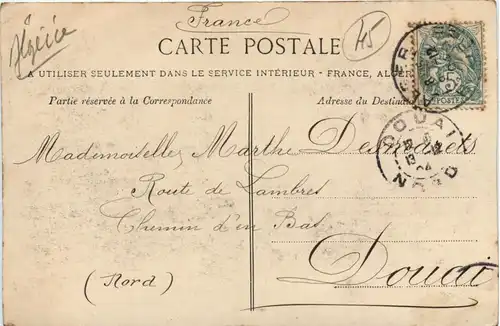 France
Algérie
45
CARTE POSTALE
A UTILISER SEULEMENT DANS LE SERVICE INTÉRIEUR - FRANCE, ALGER
Partie réservée à la Correspondance
Adresse du Destina
5c
POSTES
DOUAI
04
NORD
Mademoiselle Marthe Desmarets
Route de Lambres
Chemin d'en Bas
(Nord)
Douai